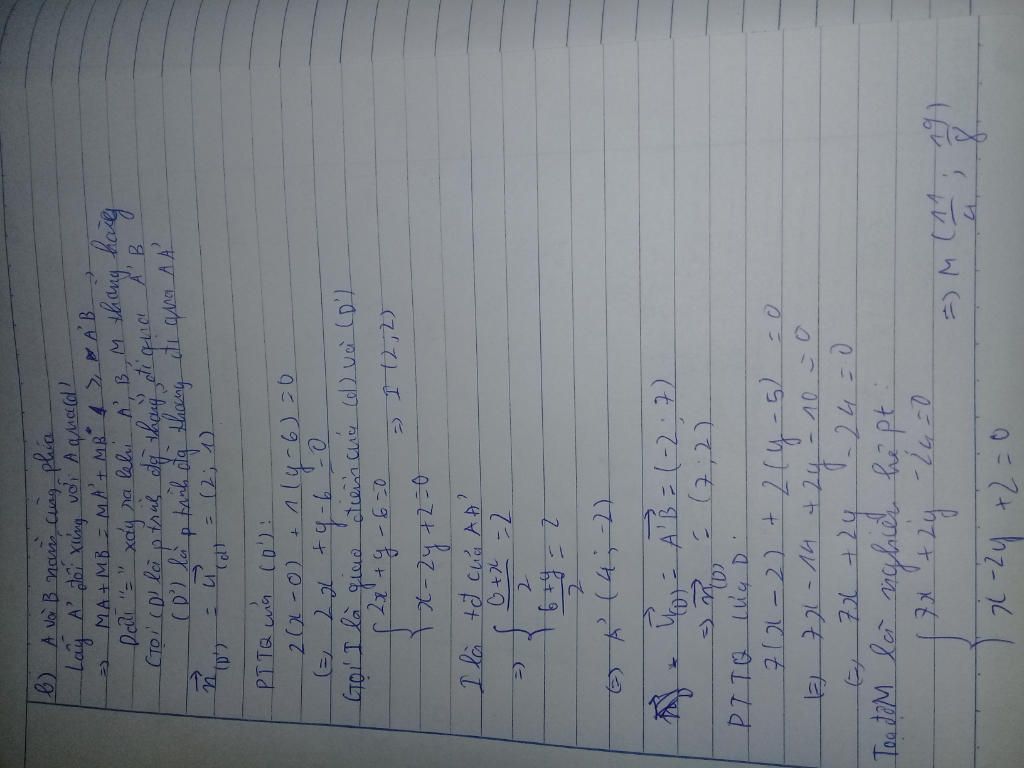 b) A và B nằm cùng phía
Lấy A' đối xứng với A qua (d)
=> MA + MB = MA' + MB ≥ A'B
Dấu "=" xảy ra khi A', B, M thẳng hàng
Gọi (D) là ptrình đg thẳng đi qua A'B
(D') là ptrình đg thẳng đi qua AA'
n(D') = u(d) = (2; 1)
PTTQ của (D'):
2(x-0) + 1(y-6) = 0
(=) 2x + y - 6 = 0
Gọi I là giao điểm của (d) và (D')
{ 2x + y - 6 = 0
{ x - 2y + 2 = 0 => I (2; 2)
I là tđ của AA'
=> { (0+x)/2 = 2
{ (6+y)/2 = 2
(=) A' (4; -2)
u(D) = A'B = (-2; 7)
=> n(D) = (7; 2)
PTTQ của D:
7(x-2) + 2(y-5) = 0
(=) 7x - 14 + 2y - 10 = 0
(=) 7x + 2y - 24 = 0
Toạ độ M là nghiệm hệ pt:
{ 7x + 2y - 24 = 0
{ x - 2y + 2 = 0 => M (11/4; 19/8)